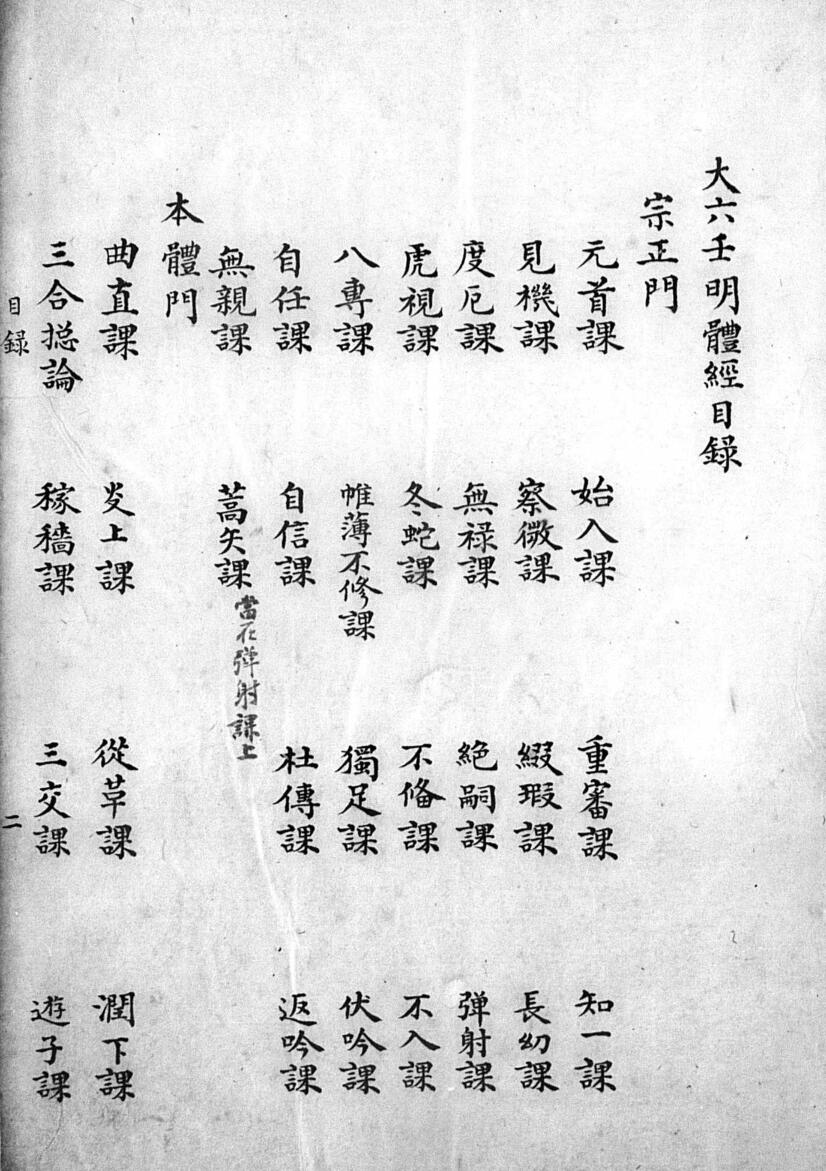 大六壬明體經目錄
宗正門
元首課 始入課 重審課 知一課
見機課 察微課 綴瑕課 長幼課
度厄課 無禄課 絶嗣課 弹射課
虎視課 冬蛇課 不俻課 不入課
八專課 帷薄不修課 獨足課 伏吟課
自任課 自信課 杜傳課 返吟課
無親課 蒿矢課 當在弹射課上
本體門
曲直課 炎上課 從革課 潤下課
三合揔論 稼穡課 三交課 遊子課
目錄 二